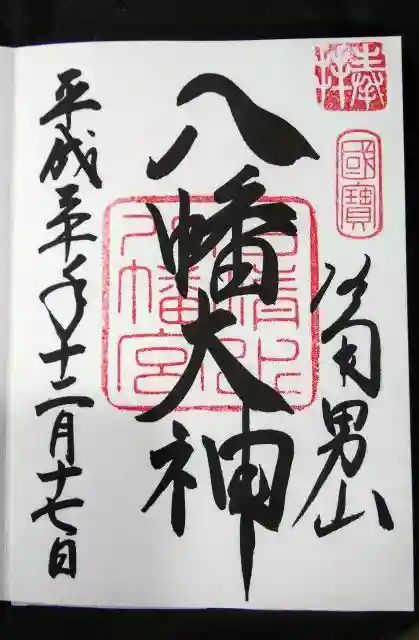 奉拝
國寶
洛南男山
八幡大神
石清水八幡宮
平成三十年十二月十七日